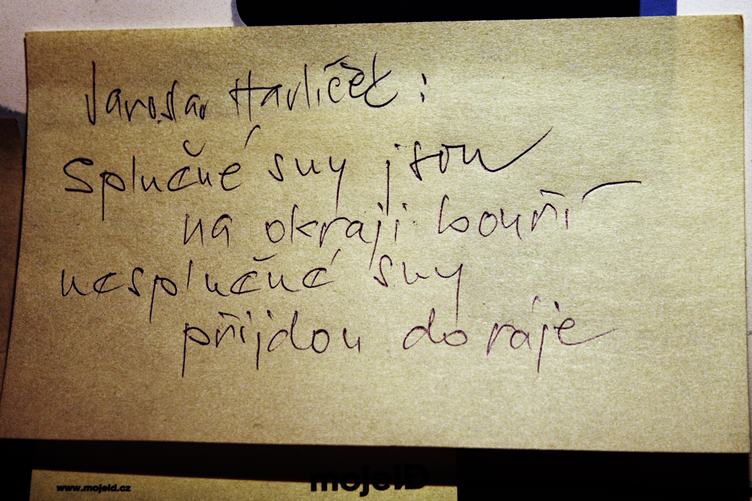 Jaroslav Havlíček:
Splučné sny jsou
na okraji bouří
nesplučné sny
přijdou do ráje
www.mojeid.cz
mojeID